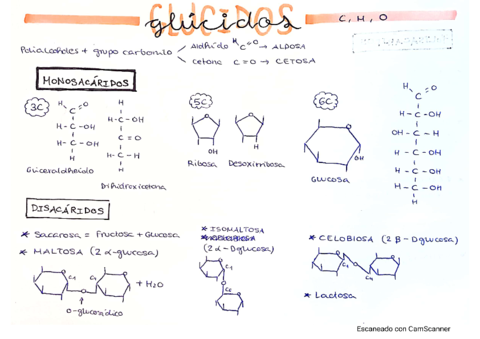 GLÚCIDOS
glúcidos
C, H, O
Polialcoholes + grupo carbonilo
Aldhído H C=O → ALDOSA
cetona C=O → CETOSA
MONOSACÁRIDOS
3C
H C=O
H-C-OH
H-C-OH
H
Gliceraldheído
H
H-C-OH
C=O
H-C-H
OH
Dihidroxicetona
5C
OH
Ribosa
H
Desoxirribosa
6C
OH
Glucosa
H C=O
H-C-OH
OH-C-H
H-C-OH
H-C-OH
H-C-OH
H
DISACÁRIDOS
* Sacarosa = Fructosa + Glucosa
* MALTOSA (2 α-glucosa)
O C1 O C4 O + H2O
O-glucosídico
* ISOMALTOSA
(2 α-Dglucosa)
C1
O
C6
* CELOBIOSA (2 β-Dglucosa)
C1 O C4
* Lactosa
Escaneado con CamScanner